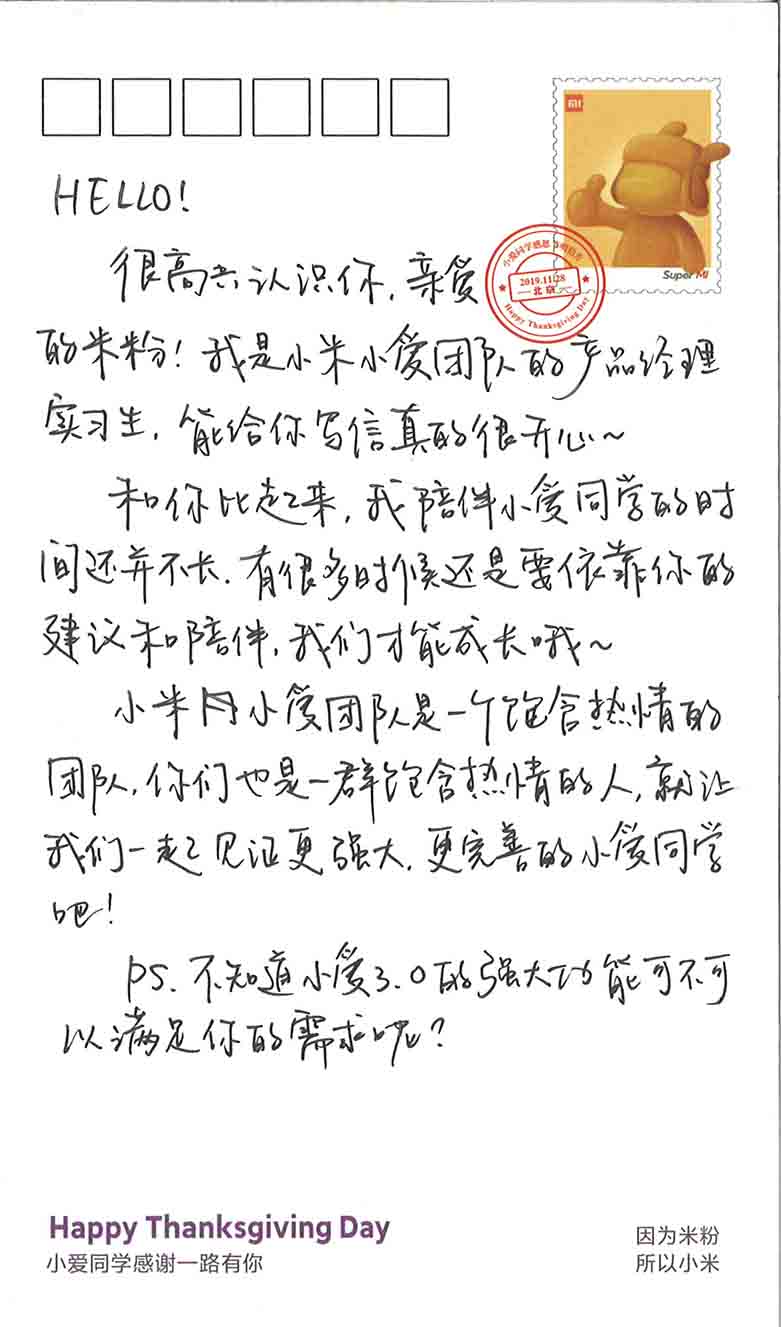 MI
Super MI
小爱同学感恩节明信片
2019.11.28
北京
Happy Thanksgiving Day
HELLO!
很高兴认识你，亲爱
的米粉！我是小米小爱团队的产品经理
实习生，能给你写信真的很开心~
和你比起来，我陪伴小爱同学的时
间还并不长．有很多时候还是要依靠你的
建议和陪伴，我们才能成长哦~
小米小爱团队是一个饱含热情的
团队，你们也是一群饱含热情的人，就让
我们一起见证更强大，更完善的小爱同学
吧！
PS．不知道小爱3.0的强大功能可不可
以满足你的需求呢？
Happy Thanksgiving Day
小爱同学感谢一路有你
因为米粉
所以小米